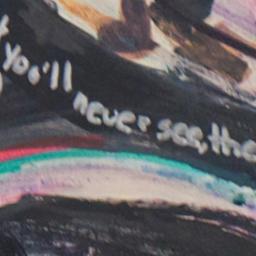 you'll never see, the